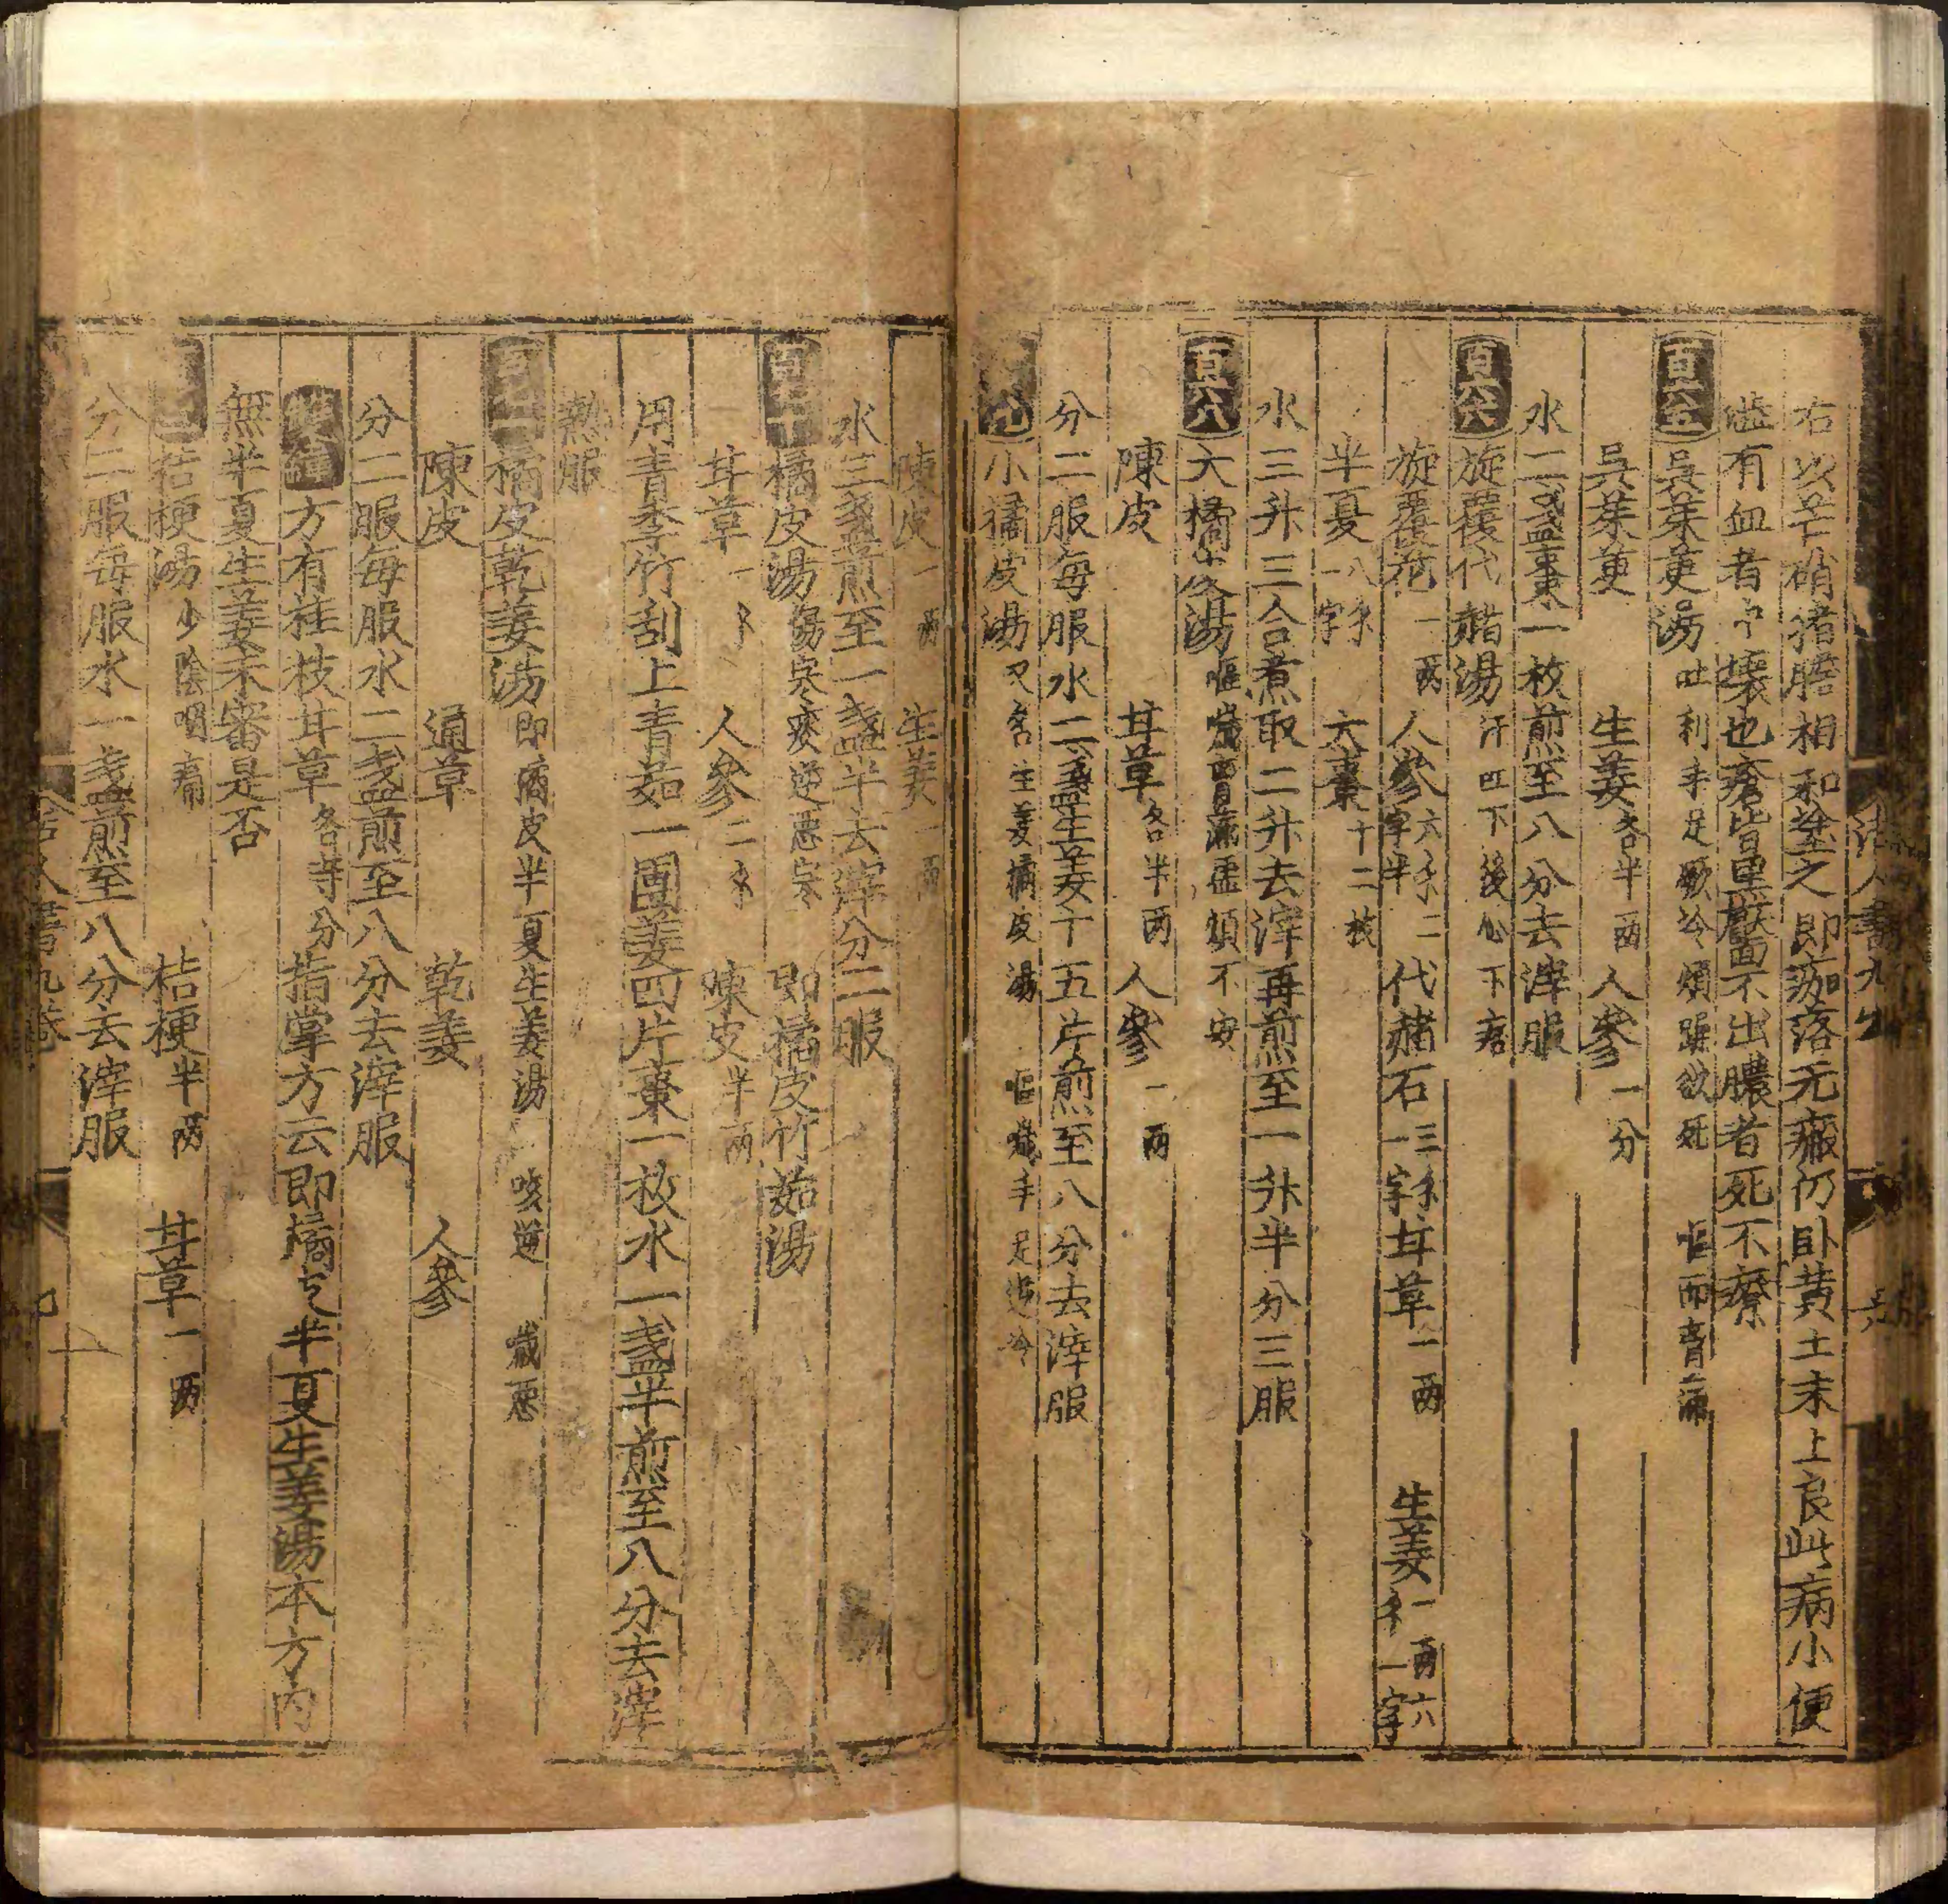 右以芒硝猪膽相和塗之即痂落无瘢仍卧黄土末上良此病小便
嗌有血者中壞也瘡皆黒靨不出膿者死不療
百六五 吳茱萸湯 吐利手足厥冷煩躁欲死 嘔而胷滿
吳茱萸 生姜各半两 人參一分
水二盞棗一枚煎至八分去滓服
百六六 旋覆代赭湯 汗吐下後心下痞
旋覆花一两 人參六銖二字半 代赭石三銖一字 甘草一两 生姜一两六銖一字
半夏八銖一字 大棗十二枚
水三升三合煮取二升去滓再煎至一升半分三服
百六八 大橘皮湯 嘔噦胷滿虛煩不安
陳皮 甘草各半两 人參一两
分二服每服水二盞生姜十五片煎至八分去滓服
九 小橘皮湯 又名生姜橘皮湯 嘔噦手足逆冷
陳皮一两 生姜一两
水三盞煎至一盞半去滓分二服
百七十 橘皮湯 傷寒痰逆惡寒 即橘皮竹茹湯
甘草一 人參二 陳皮半两
用青李竹刮上青茹一團姜四片棗一枚水一盞半煎至八分去滓
熱服
橘皮乾姜湯 即橘皮半夏生姜湯 咳逆 噦惡
陳皮 通草 乾姜 人參
分二服每服水二盞煎至八分去滓服
方有桂枝甘草各等分 指掌方云即橘皮半夏生姜湯本方内
無半夏生姜未審是否
桔梗湯 少陰咽痛 桔梗半两 甘草一两
分二服每服水一盞煎至八分去滓服